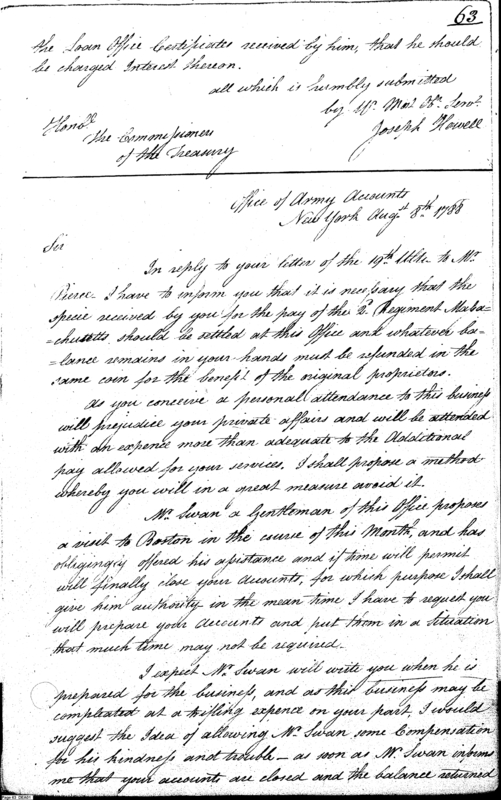 63
the Loan Office Certificates received by him, that he should
be charged Interest thereon.
all which is humbly submitted
by Yr. Most Ob. Servt.
Joseph Howell
Honble
The Commissioners
of the Treasury
Office of Army Accounts
New York Augst 8th 1788
Sir
In reply to your letter of the 19th Ulto. to Mr
Pierce I have to inform you that it is necessary that the
specie received by you for the pay of the 2d Regiment Massa-
=chusetts should be settled at this Office and whatever ba-
=lance remains in your hands must be refunded in the
same coin for the benefit of the original proprietors.
As you conceive a personal attendance to this business
will prejudice your private affairs and will be attended
with an expence more than adequate to the Additional
pay allowed for your services. I shall propose a method
whereby you will in a great measure avoid it.
Mr Swan a Gentleman of this Office proposes
a visit to Boston in the course of this Month, and has
obligingly offered his assistance and if time will permit
will finally close your Accounts, for which purpose I shall
give him authority in the mean time I have to request you
will prepare your Accounts and put them in a Situation
that much time may not be required.
I expect Mr Swan will write you when he is
prepared for the business, and as this business may be
compleated at a trifling expence on your part, I would
suggest the Idea of allowing Mr Swan some Compensation
for his kindness and trouble — as soon as Mr Swan informs
me that your accounts are closed and the balance returned